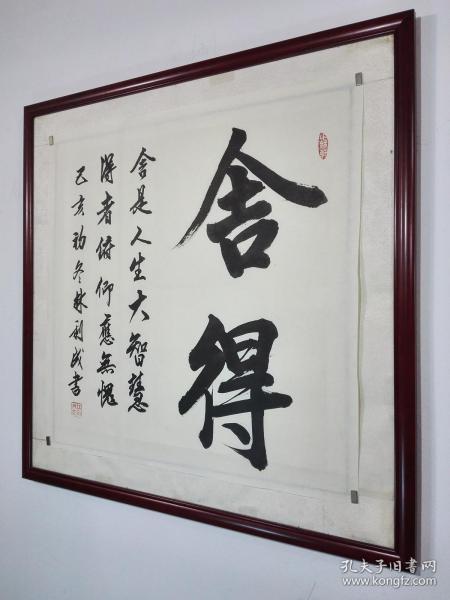 舍得
舍是人生大智慧
得者俯仰應無愧
己亥初冬林利成書
孔夫子旧书网
www.kongfz.com